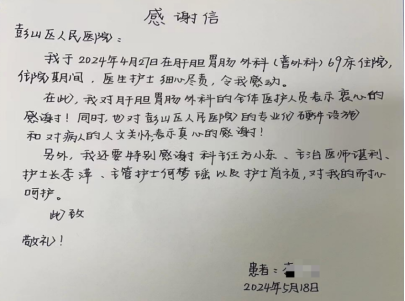 感谢信
彭山区人民医院：
我于2024年4月27日在肝胆胃肠外科（普外科）69床住院，
住院期间，医生护士细心尽责，令我感动。
在此，我对肝胆胃肠外科的全体医护人员表示衷心的
感谢！同时，也对彭山区人民医院的专业化硬件设施
和对病人的人文关怀表示真心的感谢！
另外，我还要特别感谢科主任方小东、主治医师谌利、
护士长李萍、主管护士何梦瑶以及护士肖祯，对我的耐心
呵护。
此致
敬礼！
患者：
2024年5月18日